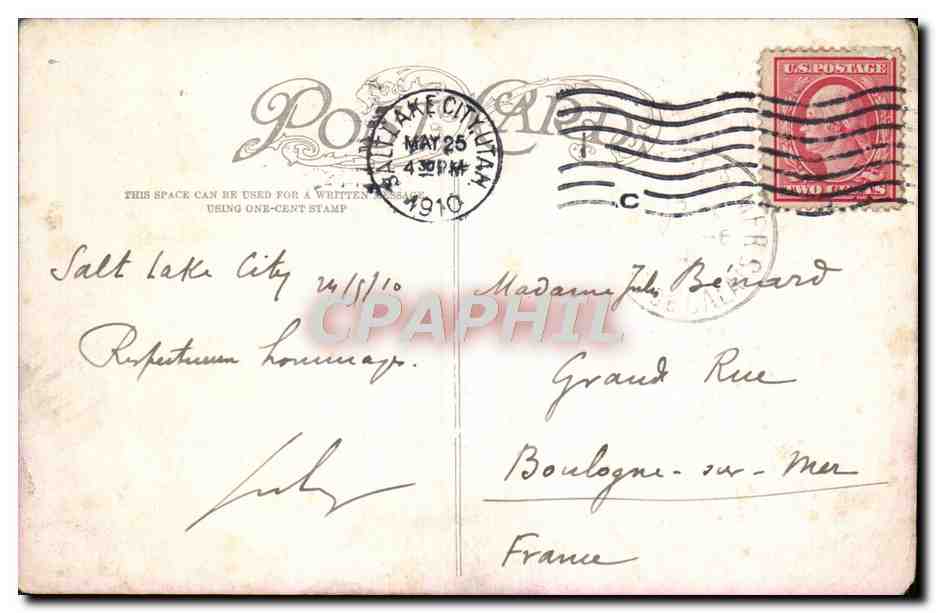 POST CARD
SALT LAKE CITY, UTAH.
MAY 25
4 30 PM
1910
C
U.S. POSTAGE
TWO CENTS
THIS SPACE CAN BE USED FOR A WRITTEN MESSAGE
USING ONE-CENT STAMP
Salt Lake City 24/5/10
hommages.
Madame Jules Bénard
Grande Rue
Boulogne-sur-Mer
France
CPAPHIL